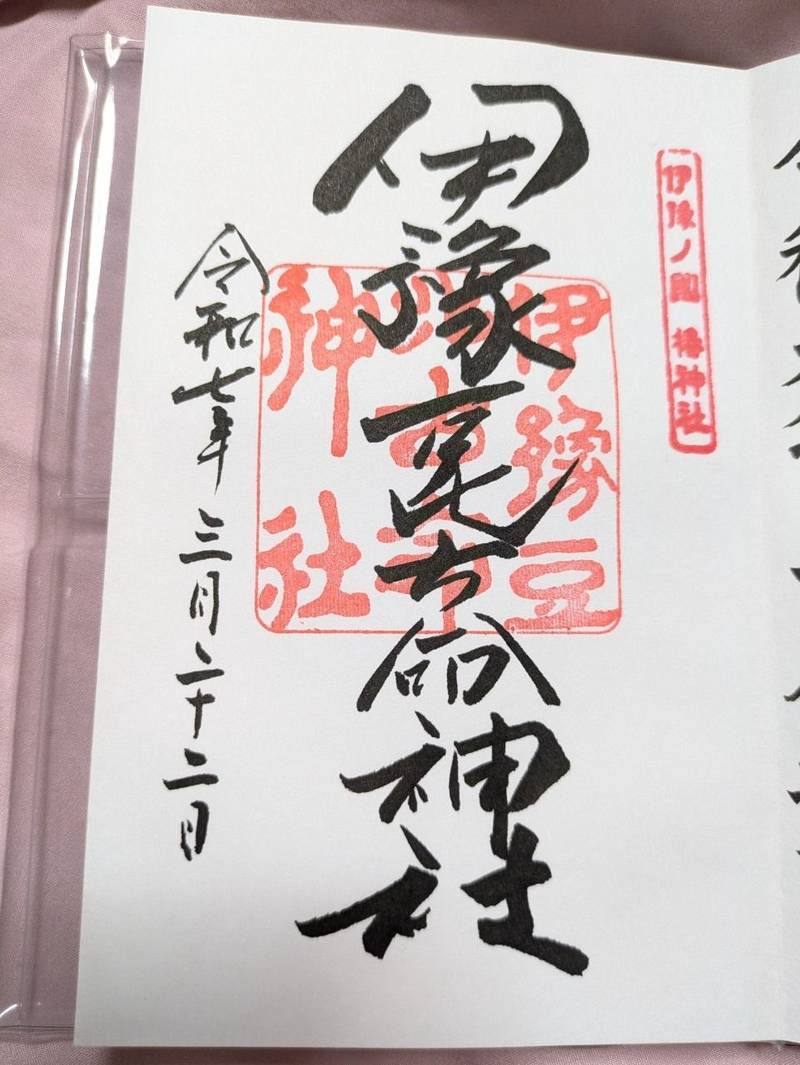 伊豫ノ國 椿神社
伊豫豆比古命神社
伊豫豆
比古命
神社
令和七年三月二十二日